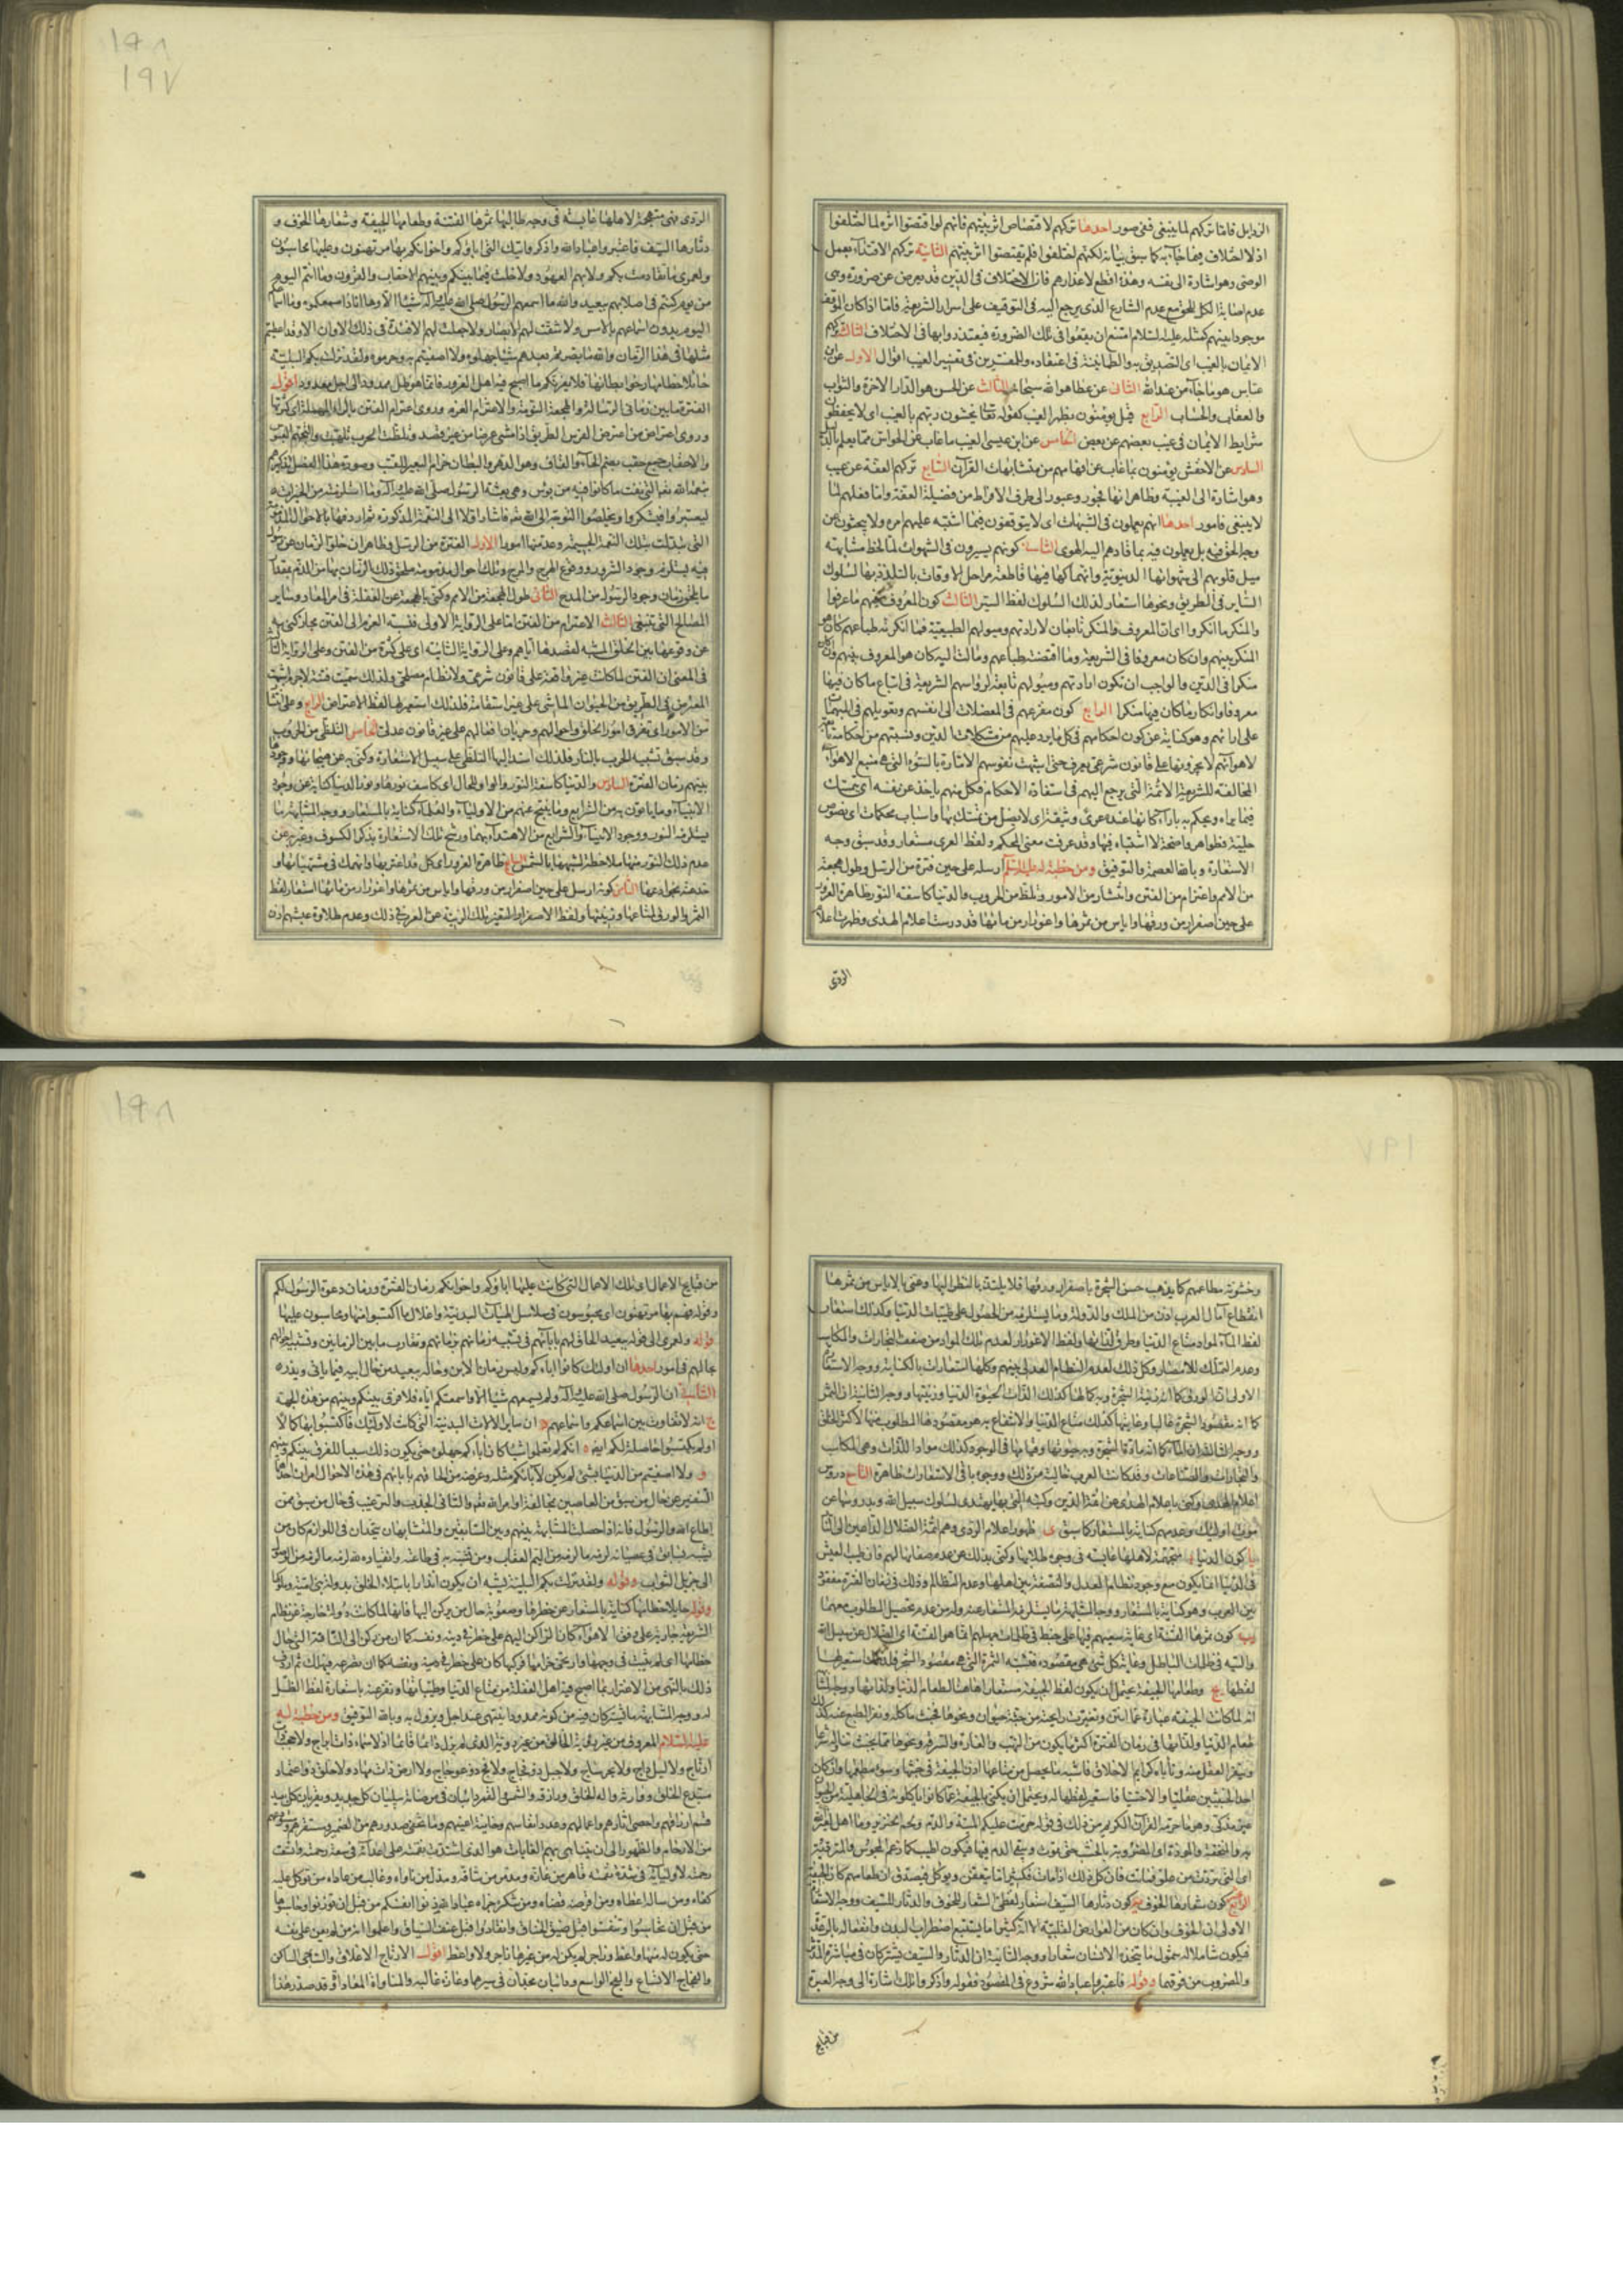 الرذايل فاما تركهم لما ينبغى ففى صور احدها تركهم لاقتصاص اثر نبيهم فانهم لو اقتصوا اثره لما اختلفوا
اذ لا اختلاف فيما جاء به كما سبق بيانه لكنهم اختلفوا فلم يقتصوا اثر نبيهم الثانية تركهم الاقتداء بعمل
الوصى وهو اشارة الى نفسه وهذه اقطع لاعذارهم فان الاختلاف فى الدين قد يعرض عن ضرورة وهى
عدم اصابة الكل للحق مع عدم الشارع الذى يرجع اليه فى التوقيف على اسرار الشريعة فاما اذا كان الموقف
موجودا بينهم كمثله عليه السلام امتنع ان يقعوا فى تلك الضرورة فيعتذروا بها فى الاختلاف الثالث تركهم
الايمان بالغيب اى التصديق به والطمانينة فى اعتقاده وللمفسرين فى تفسير الغيب اقوال الاول عن ابن
عباس هو ما جاء من عند الله الثانى عن عطا هو الله سبحانه الثالث عن الحسن هو الدار الاخرة والثواب
والعقاب والحساب الرابع قيل يومنون بظهر الغيب كقوله تعا يخشون ربهم بالغيب اى لا يحفظون
شرايط الايمان فى غيب بعضهم عن بعض الخامس عن ابن عيسى الغيب ما غاب عن الحواس مما يعلم بالدليل
السادس عن الاخفش يومنون بما غاب عن افهامهم من متشابهات القرآن السابع تركهم العفة عن عيب
وهو اشارة الى الغيبة وظاهر انها فجور وعبور الى طرف الافراط من فضيلة العفة واما فعلهم لما
لا ينبغى فامور احدها انهم يعملون فى الشبهات اى لا يتوقفون فيما اشتبه عليهم امره ولا يبحثون عن
وجه الحق فيه بل يعملون فيه بما قادهم اليه الهوى الثانية كونهم يسيرون فى الشهوات لما لحظ مشابهة
ميل قلوبهم الى شهواتها الدنيوية وانهماكها فيها قاطعة مراحل الاوقات بالتلذذ بها لسلوك
الساير فى الطريق ونحوها استعار لذلك السلوك لفظ السير الثالث كون المعروف فيهم ما عرفوا
والمنكر ما انكروا اى ان المعروف والمنكر تابعان لارادتهم وميولهم الطبيعية فما انكرته طباعهم كان هو
المنكر بينهم وان كان معروفا فى الشريعة وما اقتضته طباعهم ومالت اليه كان هو المعروف بينهم وان كان
منكرا فى الدين والواجب ان تكون ارادتهم وميولهم تابعة لرواسم الشريعة فى اتباع ما كان فيها
معروفا وانكار ما كان فيها منكرا الرابع كون مفزعهم فى المعضلات الى انفسهم وتعويلهم فى المبهمات
على ارائهم وهو كناية عن كون احكامهم فى كل ما يرد عليهم من مشكلات الدين ونسبتهم من احكامه تابعة
لاهوائهم لا يجرونها على قانون شرعى يعرف حتى اشبهت نفوسهم الامارة بالسوء التى هى منبع الاهواء
المخالفة للشريعة الائمة التى يرجع اليهم فى استفادة الاحكام فكل منهم ياخذ عن نفسه اى يتمسك
فيما يراه ويحكم به باراء كانها عنده عرى وثيقة اى لا يضل من تمسك بها واسباب محكمات اى نصوص
جلية وظواهر واضحة لا اشتباه فيها وقد عرفت معنى المحكم ولفظ العرى مستعار وقد سبق وجه
الاستعارة وبالله العصمة والتوفيق ومن خطبة له عليه السلام ارسله على حين فترة من الرسل وطول هجعة
من الامم واعتزام من الفتن وانتشار من الامور وتلظ من الحروب والدنيا كاسفة النور ظاهرة الغرور
على حين اصفرار من ورقها واياس من ثمرها واغورار من مائها قد درست اعلام الهدى وظهرت اعلام
الردى
الردى فهى متجهمة لاهلها عابسة فى وجه طالبها ثمرها الفتنة وطعامها الجيفة وشعارها الخوف و
دثارها السيف فاعتبروا عباد الله واذكروا تيك التى اباؤكم واخوانكم بها مرتهنون وعليها محاسبون
ولعمرى ما تقادمت بكم ولا بهم العهود ولا خلت فيما بينكم وبينهم الاحقاب والقرون وما انتم اليوم
من يوم كنتم فى اصلابهم ببعيد والله ما اسمعهم الرسول صلى الله عليه وآله شيئا الا وها انا ذا مسمعكموه وما اسماعكم
اليوم بدون اسماعهم بالامس ولا شقت لهم الابصار ولا جعلت لهم الافئدة فى ذلك الاوان الا وقد اعطيتم
مثلها فى هذا الزمان والله ما بصرتم بعدهم شيئا جهلوه ولا اصفيتم به وحرموه ولقد نزلت بكم البلية
جائلا خطامها رخوا بطانها فلا يغرنكم ما اصبح فيه اهل الغرور فانما هو ظل ممدود الى اجل معدود اقول
الفترة ما بين زمانى الرسالة والهجعة النومة والاعتزام العزم وروى اعترام الفتن بالراء المهملة اى كثرتها
وروى اعتراض من اعترض الفرس الطريق اذا مشى عرضا من غير قصد وتلظت الحرب تلهبت والتجهم العبوس
والاحقاب جمع حقب بضم الحاء والقاف وهو الدهر والبطان حزام البعير للقتب وصورة هذا الفصل تذكيرهم
بنعمة الله تعا التى نفت ما كانوا فيه من بؤس وهى بعثة الرسول صلى الله عليه وآله وما استلزمته من الخيرات
ليعتبروا فيشكروا ويخلصوا التوجه الى الله تعا فاشار اولا الى النعمة المذكورة ثم اردفها بالاحوال المذمومة
التى تبدلت بتلك النعمة الجسيمة وعد منها امورا الاول الفترة من الرسل وظاهر ان خلو الزمان عن رسول
فيه يستلزم وجود الشرور ووقوع الهرج والمرج وتلك احوال مذمومة يلحق ذلك الزمان بها من الذم بقدر
ما يلحق زمان وجود الرسول من المدح الثانى طول الهجعة من الامم وكنى بالهجعة عن الغفلة فى امر المعاد وساير
المصالح التى تنبغى الثالث الاعتزام من الفتن اما على الرواية الاولى فنسبة العزم الى الفتن مجاز كنى به
عن وقوعها بين الخلق المشبه لقصدها اياهم وعلى الرواية الثانية اى على كثرة من الفتن وعلى الرواية الثالثة
فى المعنى ان الفتن لما كانت غير واقعة على قانون شرعى ولا نظام مصلحى ولذلك سميت فتنة لاجرم اشبهت
المعترض فى الطريق من الحيوان الماشى على غير استقامة فلذلك استعير لها لفظ الاعتراض الرابع وعلى انتشار
من الامور اى تفرق امور الخلق واحوالهم وجريان افعالهم على غير قانون عدلى الخامس التلظى من الحروب
وقد سبق تشبيه الحرب بالنار فلذلك اسند اليها التلظى على سبيل الاستعارة وكنى به عن هيجانها ووجودها
بينهم زمان الفترة السادس والدنيا كاسفة النور والواو للحال اى كاسف نورها ونور الدنيا كناية عن وجود
الانبياء وما ياتون به من الشرايع وما ينتج عنهم من الاولياء والعلماء كناية بالمستعار ووجه المشابهة ما
يستلزمه النور ووجود الانبياء والشرايع من الاهتداء بهما ورشح تلك الاستعارة بذكر الكسوف وعبر به عن
عدم ذلك النور منها ملاحظة لشبهها بالشمس السابع ظاهرة الغرور اى كل قد اغتر بها وانهمك فى مشتهياتها و
خدعته بخدعها الثامن كونه ارسل على حين اصفرار من ورقها واياس من ثمرها واغورار من مائها استعار لفظ
الثمر والورق لمتاعها وزينتها ولفظ الاصفرار لتغير تلك الزينة عن العرب فى ذلك وعدم طلاوة عيشهم اذن
وخشونة مطاعمهم كما يذهب حسن الشجرة باصفرار ورقها فلا يلتذ بالنظر اليها وعنى بالاياس من ثمرها
انقطاع آمال العرب اذن من الملك والدولة وما يستلزمه من الحصول على طيبات الدنيا وكذلك استعار
لفظ الماء لمواد متاع الدنيا وطرق لذاتها ولفظ الاغورار لعدم تلك المواد من ضعف التجارات والمكاسب
وعدم التملك للامصار وكل ذلك لعدم النظام العدلى بينهم وكلها استعارات بالكناية ووجه الاستعارة
الاولى ان الورق كما انه زينة الشجرة وبه كمالها كذلك لذات الحيوة الدنيا وزينتها ووجه الثانية ان الثمر
كما انه مقصود الشجرة غالبا وغايتها كذلك متاع الدنيا والانتفاع به هو مقصودها المطلوب منها لاكثر الخلق
ووجه الثالثة ان الماء كما انه مادة الشجرة وبه حيوتها وقيامها فى الوجود كذلك مواد اللذات وهى المكاسب
والتجارات والصناعات وقد كانت العرب خالية من ذلك ووجوه باقى الاستعارات ظاهرة التاسع دروس
اعلام الهدى وكنى باعلام الهدى عن ائمة الدين وكتبه التى بها يهتدى لسلوك سبيل الله وبدروسها عن
موت اولئك وعدمهم كناية بالمستعار كما سبق ى ظهور اعلام الردى وهم ائمة الضلال الداعين الى النار
يا كون الدنيا متجهمة لاهلها عابسة فى وجوه طلابها وكنى بذلك عن عدم صفائها لهم فان طيب العيش
فى الدنيا انما يكون مع وجود نظام العدل والتصفة بين اهلها وعدم التظالم وذلك فى زمان الفترة مفقود
بين العرب وهو كناية بالمستعار ووجه المشابهة ما يستلزمه المستعار عنه وله من عدم تحصيل المطلوب معهما
يب كون ثمرها الفتنة اى غاية سعيهم فيها على خبط فى ظلمات جهلهم انما هو الفتنة اى الضلال عن سبيل الله
والتيه فى ظلمات الباطل وغاية كل شى هى مقصوده فتشبه الثمرة التى هى مقصود الشجر فلذلك استعير لها
لفظها يج وطعامها الجيفة يحتمل ان يكون لفظ الجيفة مستعارا هاهنا لطعام الدنيا ولذاتها ووجه المشابهة
انه لما كانت الجيفة عبارة عما انتن وتغيرت رايحته من جثة حيوان ونحوها فخبث ماكله ونفر الطبع عنه كذلك
طعام الدنيا ولذاتها فى زمان الفترة اكثر ما يكون من النهب والغارة والسرقة ونحوها مما يخبث تناوله شرعا
وينفر العقل منه وتاباه كرايم الاخلاق فاشبه ما يحصل من متاعها اذن الجيفة فى خبثها وسوء مطعمها وان كان
احد الخبثين عقليا والاخر حسيا فاستعير لفظها له ويحتمل ان يكنى بالجيفة عما كانوا ياكلونه فى الجاهلية من الحيوان
غير مذكى وهو ما حرمه القرآن الكريم من ذلك فى قوله حرمت عليكم الميتة والدم ولحم الخنزير وما اهل لغير الله
به والمنخنقة والموقوذة اى المضروبة بالخشب حتى تموت ويبقى الدم فيها فيكون اطيب كما زعم المجوس والمتردية
اى التى تردت من علو فماتت فان كل ذلك اذا مات فكثيرا ما يتعفن ويوكل فيصدق ان طعامهم كان الجيفة
الرابع كون شعارها الخوف يه كون دثارها السيف استعار لفظى الشعار للخوف والدثار للسيف ووجه الاستعارة
الاولى ان الخوف وان كان من العوارض القلبية الا انه كثيرا ما يستتبع اضطراب البدن وانفعاله بالرعدة
فيكون شاملا له شمول ما يتخذه الانسان شعارا ووجه الثانية ان الدثار والسيف يشتركان فى مباشرة المدثر
والمضروب من فوقهما وقوله فاعتبروا عباد الله شروع فى المقصود فقوله واذكروا تلك اشارة الى وجه العبرة
من قبايح
من قبايح الاعمال اى تلك الاعمال التى كانت عليها اباؤكم واخوانكم زمان الفترة وزمان دعوة الرسول لكم
وقوله فهم بها مرتهنون اى محبوسون فى سلاسل الهيآت البدنية واغلال ما اكتسبوا منها ومحاسبون عليها
قوله ولعمرى الى قوله ببعيد الحاق لهم بابائهم فى تشبيه زمانهم بزمانهم وتقارب ما بين الزمانين وتشبيه احوالهم
بحالهم فى امور احدها ان اولئك كانوا اباءكم وليس زمان الابن وحاله ببعيد من حال ابيه فيما ياتى ويذره
الثانية ان الرسول صلى الله عليه وآله لم يسمعهم شيئا الا واسمعتكم اياه فلا فرق بينكم وبينهم من هذه الجهة
ج انه لا تفاوت بين اسماعكم واسماعهم د ان ساير الالات البدنية التى كانت لاولئك فاكتسبوا بها كمالا
او لم يكتسبوا حاصلة لكم ايضا ه انكم لم تعلموا شيئا كان اباءكم جهلوه حتى يكون ذلك سببا للفرق بينكم وبينهم
و ولا اصفيتم من الدنيا بشى لم يكن لآبائكم مثله وغرضه من الحاقهم بابائهم فى هذه الاحوال امران احدهما
التنفير عن حال من سبق من العاصين بمخالفة اوامر الله تعا والثانى الجذب والترغيب فى حال من سبق ممن
اطاع الله والرسول فانه اذا حصلت المشابهة بينهم وبين السابقين والمتشابهان يتحدان فى اللوازم كان من
الى جزيل الثواب وقوله ولقد نزلت بكم البلية يشبه ان يكون انذارا بابتلاء الخلق بدولة بنى امية وملوكها
وقوله جايلا خطامها كناية بالمستعار عن خطرها وصعوبة حال من يركن اليها فانها لما كانت دولة خارجة عن نظام
الشريعة جارية على وفق الاهواء كان الراكن اليهم على خطر فى دينه ونفسه كما ان من ركن الى الناقة التى جال
خطامها اى لم يثبت فى وجهها وارتخى حزامها فركبها كان على خطر ان تصرعه فيهلك ثم اردف
ذلك بالنهى عن الاغترار بما اصبح فيه اهل الغفلة من متاع الدنيا وطيباتها ونفر عنه باستعارة لفظ الظل
له ووجه المشابهة ما يشتركان فيه من كونه ممدودا ينتهى عند اجل ويزول به وبالله التوفيق ومن خطبة له
عليه السلام المعروف من غير رؤية الخالق من غير روية الذى لم يزل دائما قائما اذ لا سماء ذات ابراج ولا حجب ذات
ارتاج ولا ليل داج ولا بحر ساج ولا جبل ذو فجاج ولا فج ذو اعوجاج ولا ارض ذات مهاد ولا خلق ذو اعتماد
مبتدع الخلق ووارثه واله الخلق ورازقه والشمس والقمر دائبان فى مرضاته يبليان كل جديد ويقربان كل بعيد
قسم ارزاقهم واحصى اثارهم واعمالهم وعدد انفاسهم وخاينة اعينهم وما تخفى صدورهم من الضمير ومستقرهم ومستودعهم
من الارحام والظهور الى ان تتناهى بهم الغايات هو الذى اشتدت نقمته على اعدائه فى سعة رحمته واتسعت
رحمته لاوليائه فى شدة نقمته قاهر من عازه ومدمر من شاقه ومذل من ناواه وغالب من عاداه من توكل عليه
كفاه ومن ساله اعطاه ومن اقرضه قضاه ومن شكره جزاه عباد الله زنوا انفسكم من قبل ان توزنوا وحاسبوها
من قبل ان تحاسبوا وتنفسوا قبل ضيق الخناق وانقادوا قبل عنف السياق واعلموا انه من لم يعن على نفسه
حتى يكون له منها واعظ وزاجر لم يكن له من غيرها زاجر ولا واعظ اقول الارتاج الاغلاق والساجى الساكن
والفجاج الاتساع والفج الواسع ودائبان مجدان فى سيرهما وعازه غالبه والمناواة المعاداة وقد صدر هذا